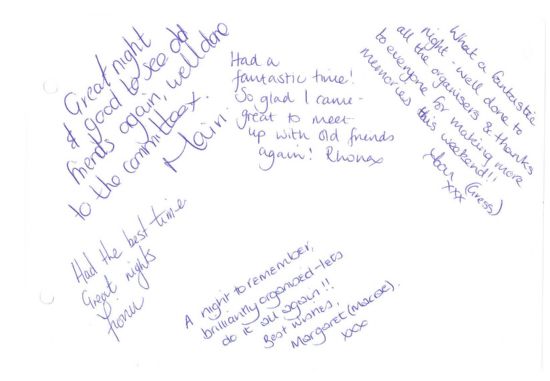 Great night
& good to see old
friends again, well done
to the committee x.
Mairi
Had a
fantastic time!
So glad I came -
great to meet
up with old friends
again! Rhona x
What a fantastic
night - well done to
all the organisers & thanks
to everyone for making more
memories this weekend!!
(Gress)
xxx
Had the best time
Great nights
A night to remember,
brilliantly organised - lets
do it all again!!
Best wishes,
Margaret
xxx